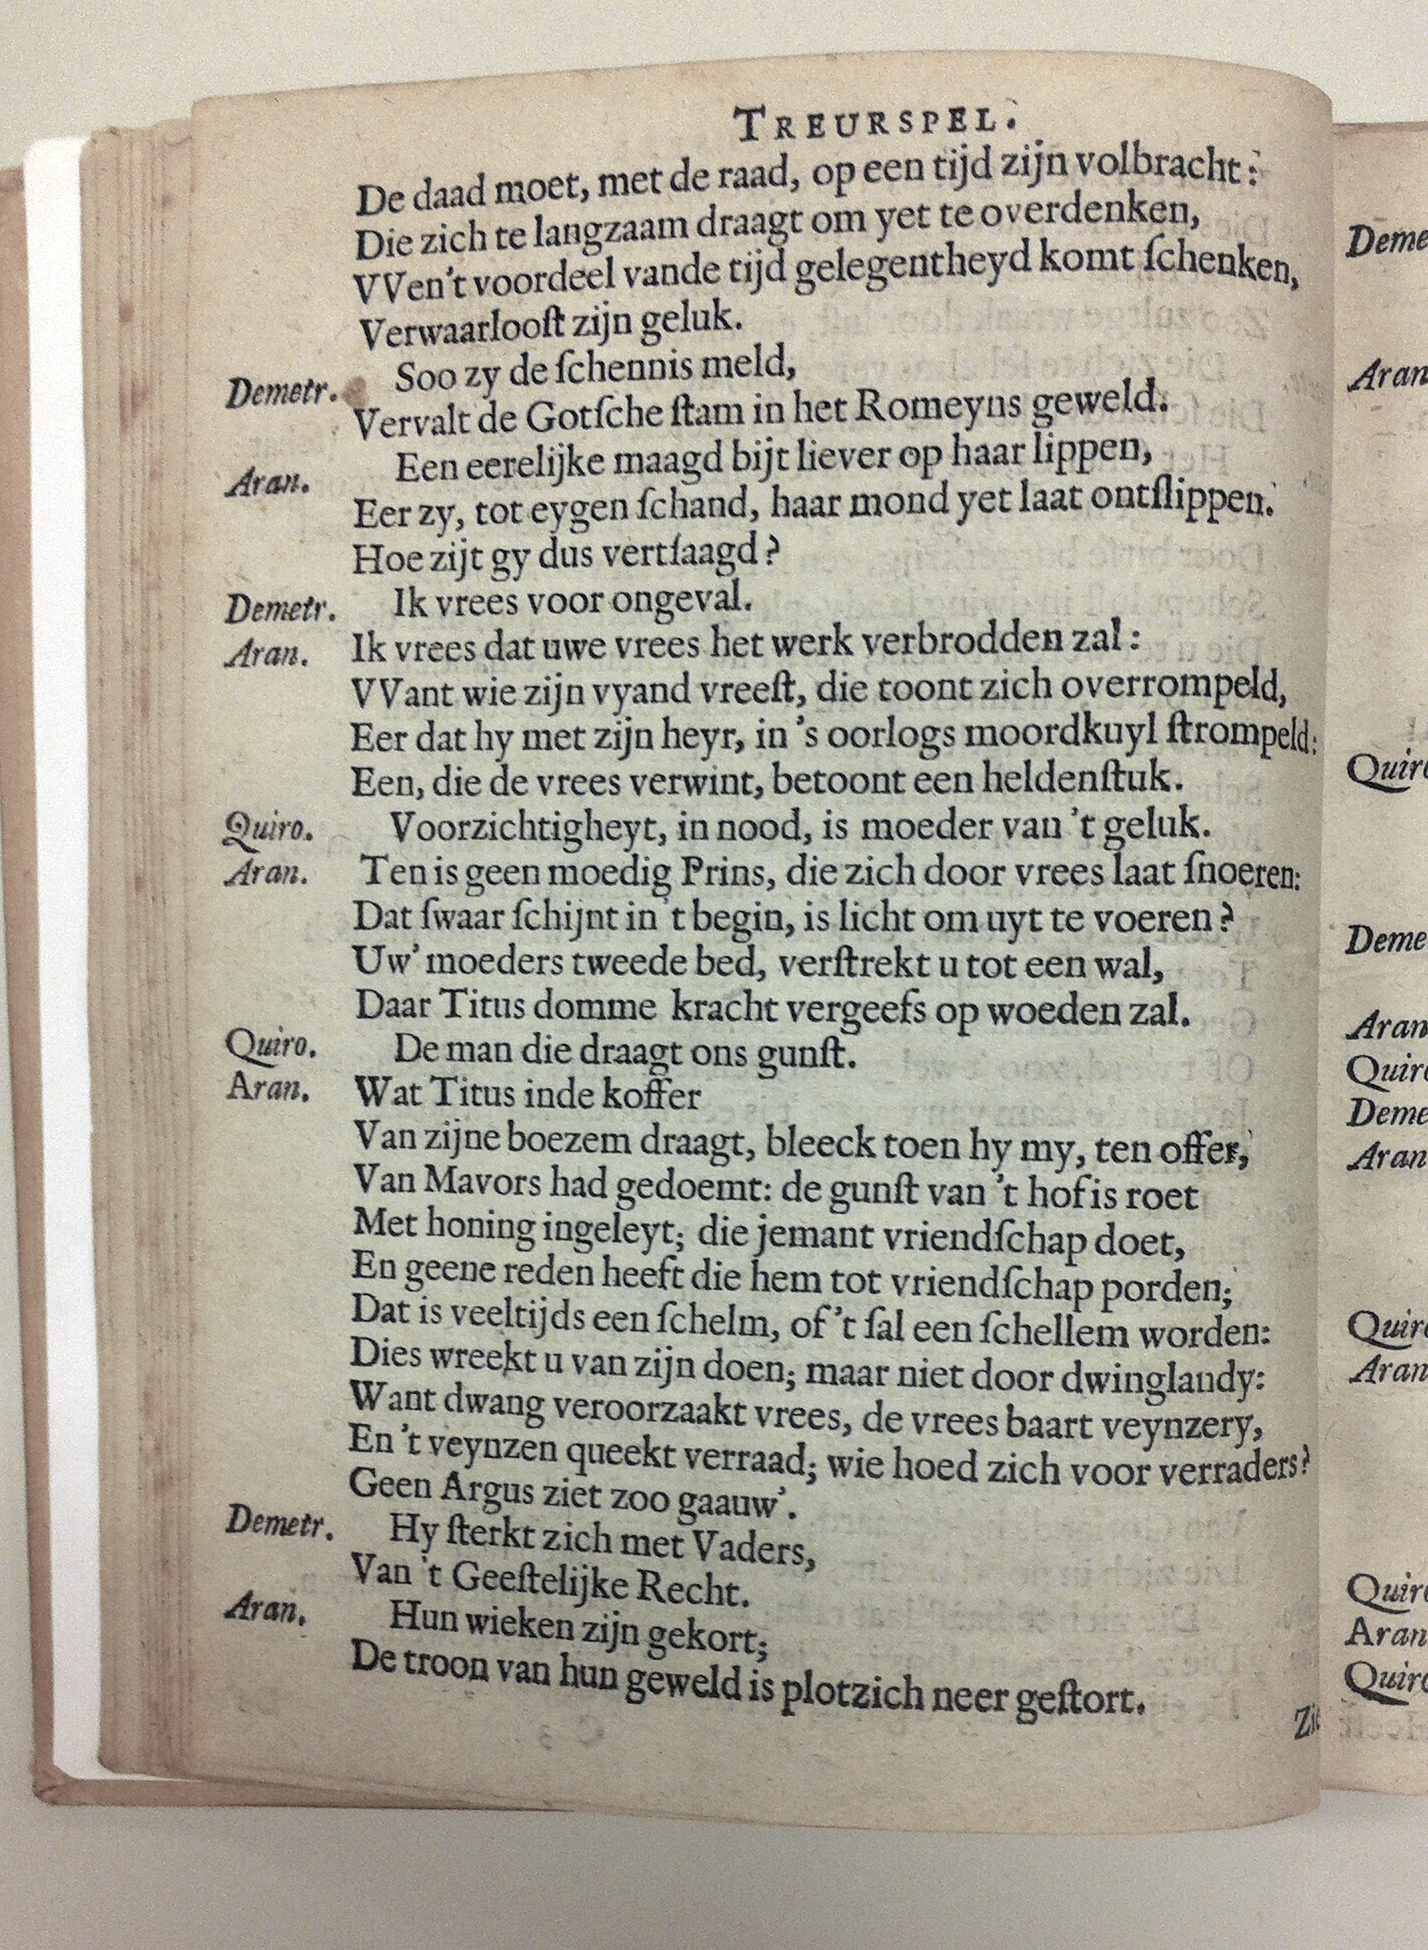 TREURSPEL.
De daad moet, met de raad, op een tijd zijn volbracht:
Die zich te langzaam draagt om yet te overdenken,
VVen't voordeel vande tijd gelegentheyd komt ſchenken,
Verwaarlooſt zijn geluk.
Demetr. Soo zy de ſchennis meld,
Vervalt de Gotſche ſtam in het Romeyns geweld.
Aran. Een eerelijke maagd bijt liever op haar lippen,
Eer zy, tot eygen ſchand, haar mond yet laat ontſlippen.
Hoe zijt gy dus vertſaagd?
Demetr. Ik vrees voor ongeval.
Aran. Ik vrees dat uwe vrees het werk verbrodden zal:
VVant wie zijn vyand vreeſt, die toont zich overrompeld,
Eer dat hy met zijn heyr, in 's oorlogs moordkuyl ſtrompeld:
Een, die de vrees verwint, betoont een heldenſtuk.
Quiro. Voorzichtigheyt, in nood, is moeder van 't geluk.
Aran. Ten is geen moedig Prins, die zich door vrees laat ſnoeren:
Dat ſwaar ſchijnt in 't begin, is licht om uyt te voeren?
Uw' moeders tweede bed, verſtrekt u tot een wal,
Daar Titus domme kracht vergeefs op woeden zal.
Quiro. De man die draagt ons gunſt.
Aran. Wat Titus inde koffer
Van zijne boezem draagt, bleeck toen hy my, ten offer,
Van Mavors had gedoemt: de gunſt van 't hof is roet
Met honing ingeleyt; die jemant vriendſchap doet,
En geene reden heeft die hem tot vriendſchap porden;
Dat is veeltijds een ſchelm, of 't ſal een ſchellem worden:
Dies wreekt u van zijn doen; maar niet door dwinglandy:
Want dwang veroorzaakt vrees, de vrees baart veynzery,
En 't veynzen queekt verraad; wie hoed zich voor verraders?
Geen Argus ziet zoo gaauw'.
Demetr. Hy ſterkt zich met Vaders,
Van 't Geeſtelijke Recht.
Aran. Hun wieken zijn gekort;
De troon van hun geweld is plotzich neer geſtort.
Deme
Aran
Quiro
Deme
Aran
Quiro
Deme
Aran
Quiro
Aran
Quiro
Aran
Quiro